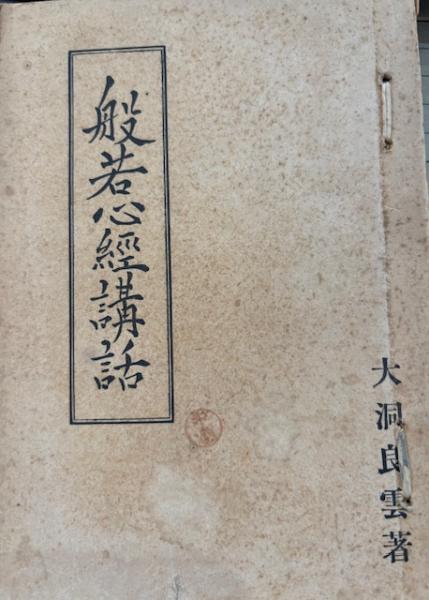 般若心經講話
大洞良雲著